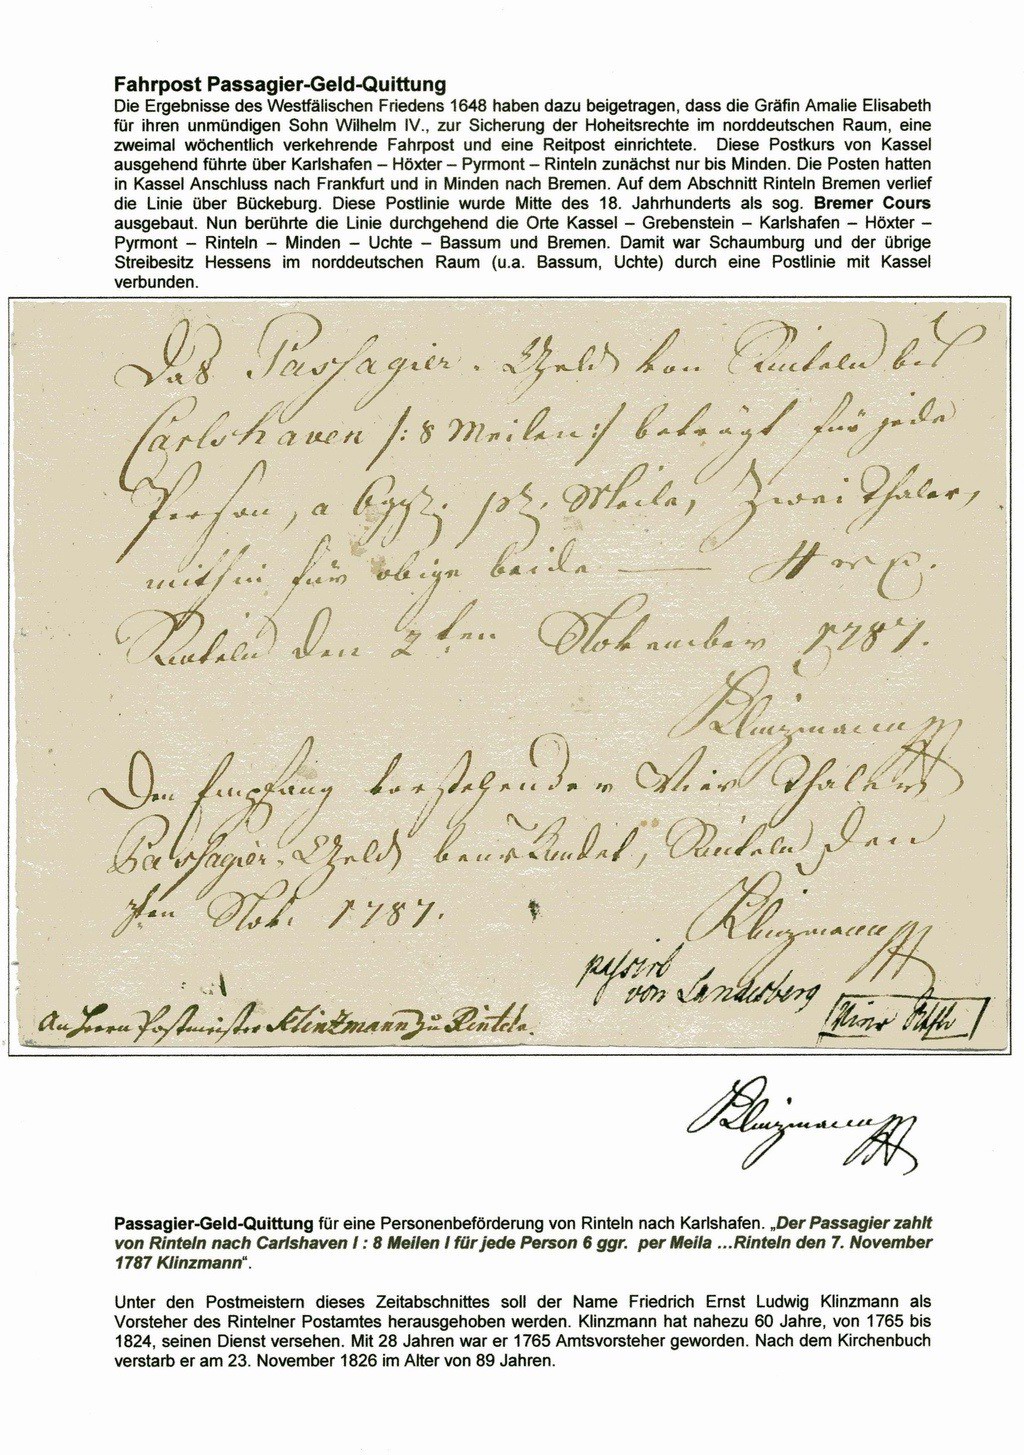 Fahrpost Passagier-Geld-Quittung
Die Ergebnisse des Westfälischen Friedens 1648 haben dazu beigetragen, dass die Gräfin Amalie Elisabeth
für ihren unmündigen Sohn Wilhelm IV., zur Sicherung der Hoheitsrechte im norddeutschen Raum, eine
zweimal wöchentlich verkehrende Fahrpost und eine Reitpost einrichtete. Diese Postkurs von Kassel
ausgehend führte über Karlshafen – Höxter – Pyrmont – Rinteln zunächst nur bis Minden. Die Posten hatten
in Kassel Anschluss nach Frankfurt und in Minden nach Bremen. Auf dem Abschnitt Rinteln Bremen verlief
die Linie über Bückeburg. Diese Postlinie wurde Mitte des 18. Jahrhunderts als sog. Bremer Cours
ausgebaut. Nun berührte die Linie durchgehend die Orte Kassel – Grebenstein – Karlshafen – Höxter –
Pyrmont – Rinteln – Minden – Uchte – Bassum und Bremen. Damit war Schaumburg und der übrige
Streibesitz Hessens im norddeutschen Raum (u.a. Bassum, Uchte) durch eine Postlinie mit Kassel
verbunden.
Das Passagier-Geld von Rinteln bis
Carlshaven /: 8 Meilen :/ beträgt für jede
Person, a 6 ggr. pr. Meile, Zwei Thaler,
mithin für obige beide — 4
Rinteln den 2ten November 1787.
Klinzmann
Den Empfang vorstehender Vier Thaler
Passagier-Geld beurkundet, Rinteln den
Nov. 1787.
Klinzmann
passirt
von Landesberg
An Herrn Postmeister Klintzmann zu Rinteln.
Klinzmann
Passagier-Geld-Quittung für eine Personenbeförderung von Rinteln nach Karlshafen. „Der Passagier zahlt
von Rinteln nach Carlshaven I : 8 Meilen I für jede Person 6 ggr. per Meila ...Rinteln den 7. November
1787 Klinzmann“.
Unter den Postmeistern dieses Zeitabschnittes soll der Name Friedrich Ernst Ludwig Klinzmann als
Vorsteher des Rintelner Postamtes herausgehoben werden. Klinzmann hat nahezu 60 Jahre, von 1765 bis
1824, seinen Dienst versehen. Mit 28 Jahren war er 1765 Amtsvorsteher geworden. Nach dem Kirchenbuch
verstarb er am 23. November 1826 im Alter von 89 Jahren.